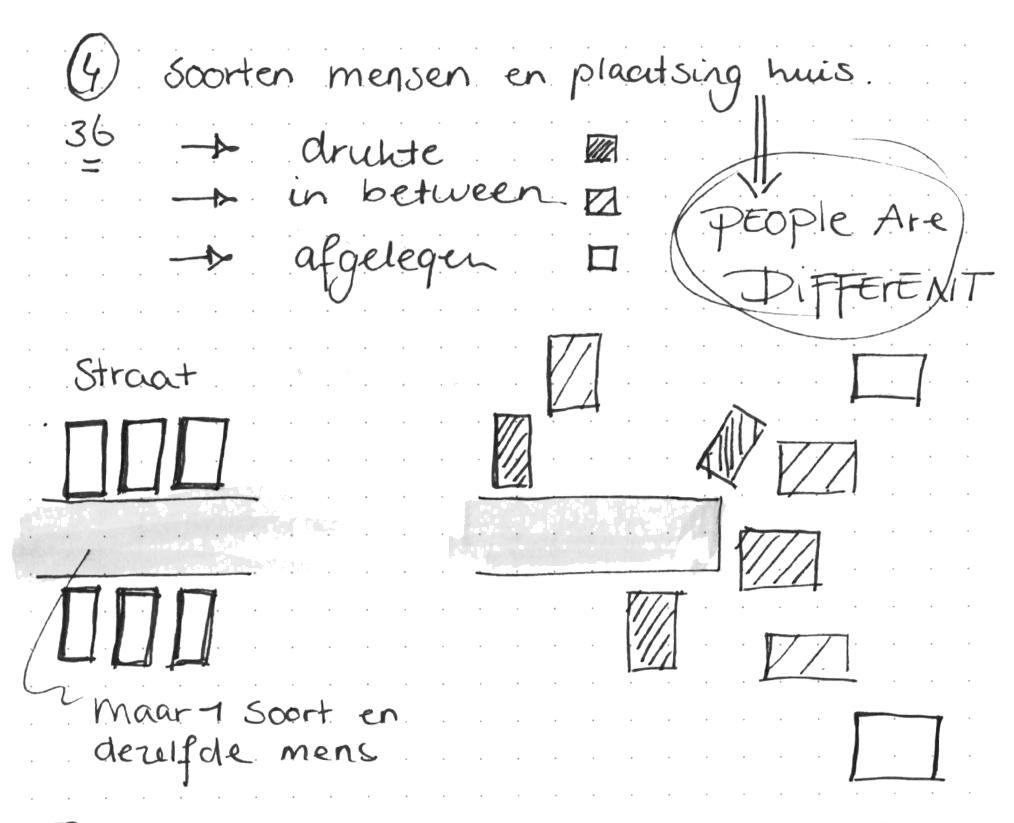 4 soorten mensen en plaatsing huis.
36
drukte
in between
afgelegen
PEOPLE Are
DiFFErENT
Straat
maar 1 soort en
dezelfde mens